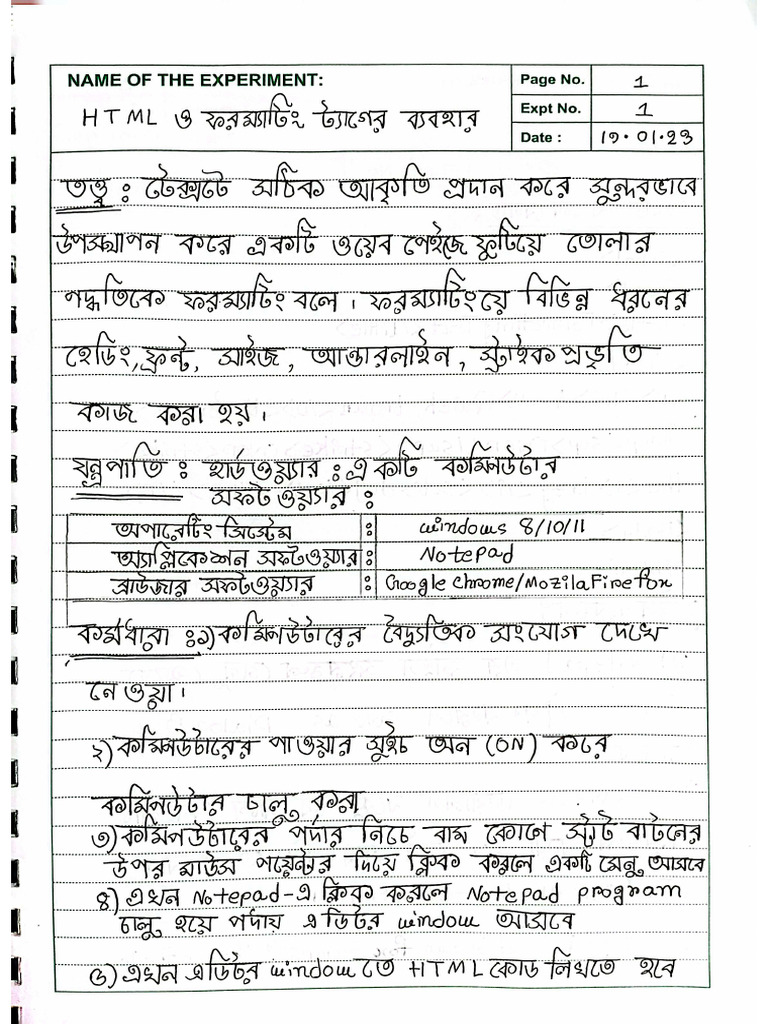 NAME OF THE EXPERIMENT:
Page No. 1
HTML ও ফরম্যাটিং ট্যাগের ব্যবহার
Expt No. 1
Date : 19.01.23
তত্ত্ব : টেক্সটে সঠিক আকৃতি প্রদান করে সুন্দরভাবে
উপস্থাপন করে একটি ওয়েব পেইজে ফুটিয়ে তোলার
পদ্ধতিকে ফরম্যাটিং বলে । ফরম্যাটিংয়ে বিভিন্ন ধরনের
হেডিং, ফ্রন্ট, সাইজ, আন্ডারলাইন, স্ট্রাইক প্রভৃতি
কাজ করা হয় ।
যন্ত্রপাতি : হার্ডওয়্যার : একটি কম্পিউটার
সফটওয়্যার :
অপারেটিং সিস্টেম : windows 8/10/11
অ্যাপ্লিকেশন সফটওয়্যার : Notepad
ব্রাউজার সফটওয়্যার : Google Chrome/Mozila Firefox
কার্যধারা : ১) কম্পিউটারের বৈদ্যুতিক সংযোগ দেখে
নেওয়া ।
২) কম্পিউটারের পাওয়ার সুইচ অন (ON) করে
কম্পিউটার চালু করা
৩) কম্পিউটারের পর্দার নিচে বাম কোণে স্টার্ট বাটনের
উপর মাউস পয়েন্টার দিয়ে ক্লিক করলে একটি মেনু আসবে
৪) এখন Notepad-এ ক্লিক করলে Notepad program
চালু হয়ে পর্দায় এডিটর window আসবে
৫) এখন এডিটর window তে HTML কোড লিখতে হবে